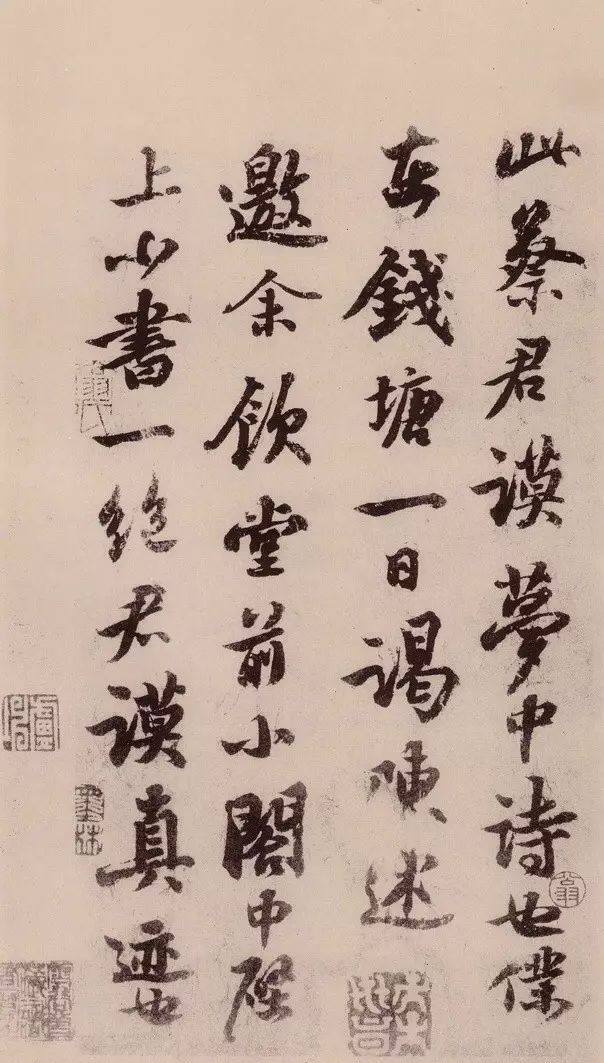 此蔡君謨夢中詩也僕
在錢塘一日謁陳述
邀余飲堂前小閣中壁
上小書一絕君謨真迹也
墨林